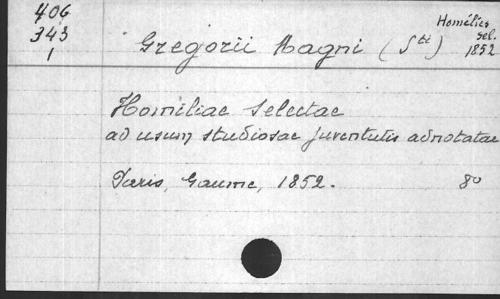 406
343
1
Homélies
sel.
1852
Gregorii Magni (Sti)
Homiliae selectae
ad usum studiosae juventutis adnotatae
Paris, Gaume, 1852. 8º